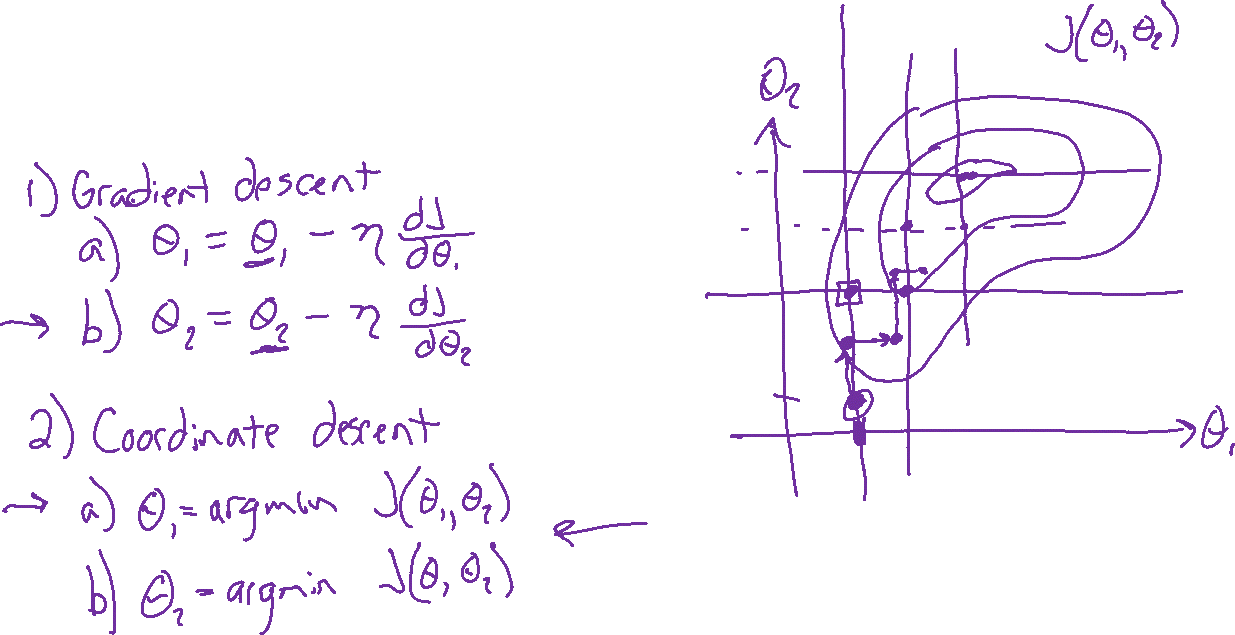 J(θ₁, θ₂)
θ₂
1) Gradient descent
a) θ₁ = θ₁ − η dJ/dθ₁
→ b) θ₂ = θ₂ − η dJ/dθ₂
2) Coordinate descent
θ₁
→ a) θ₁ = argmin J(θ₁, θ₂) ←
b) θ₂ = argmin J(θ, θ₂)